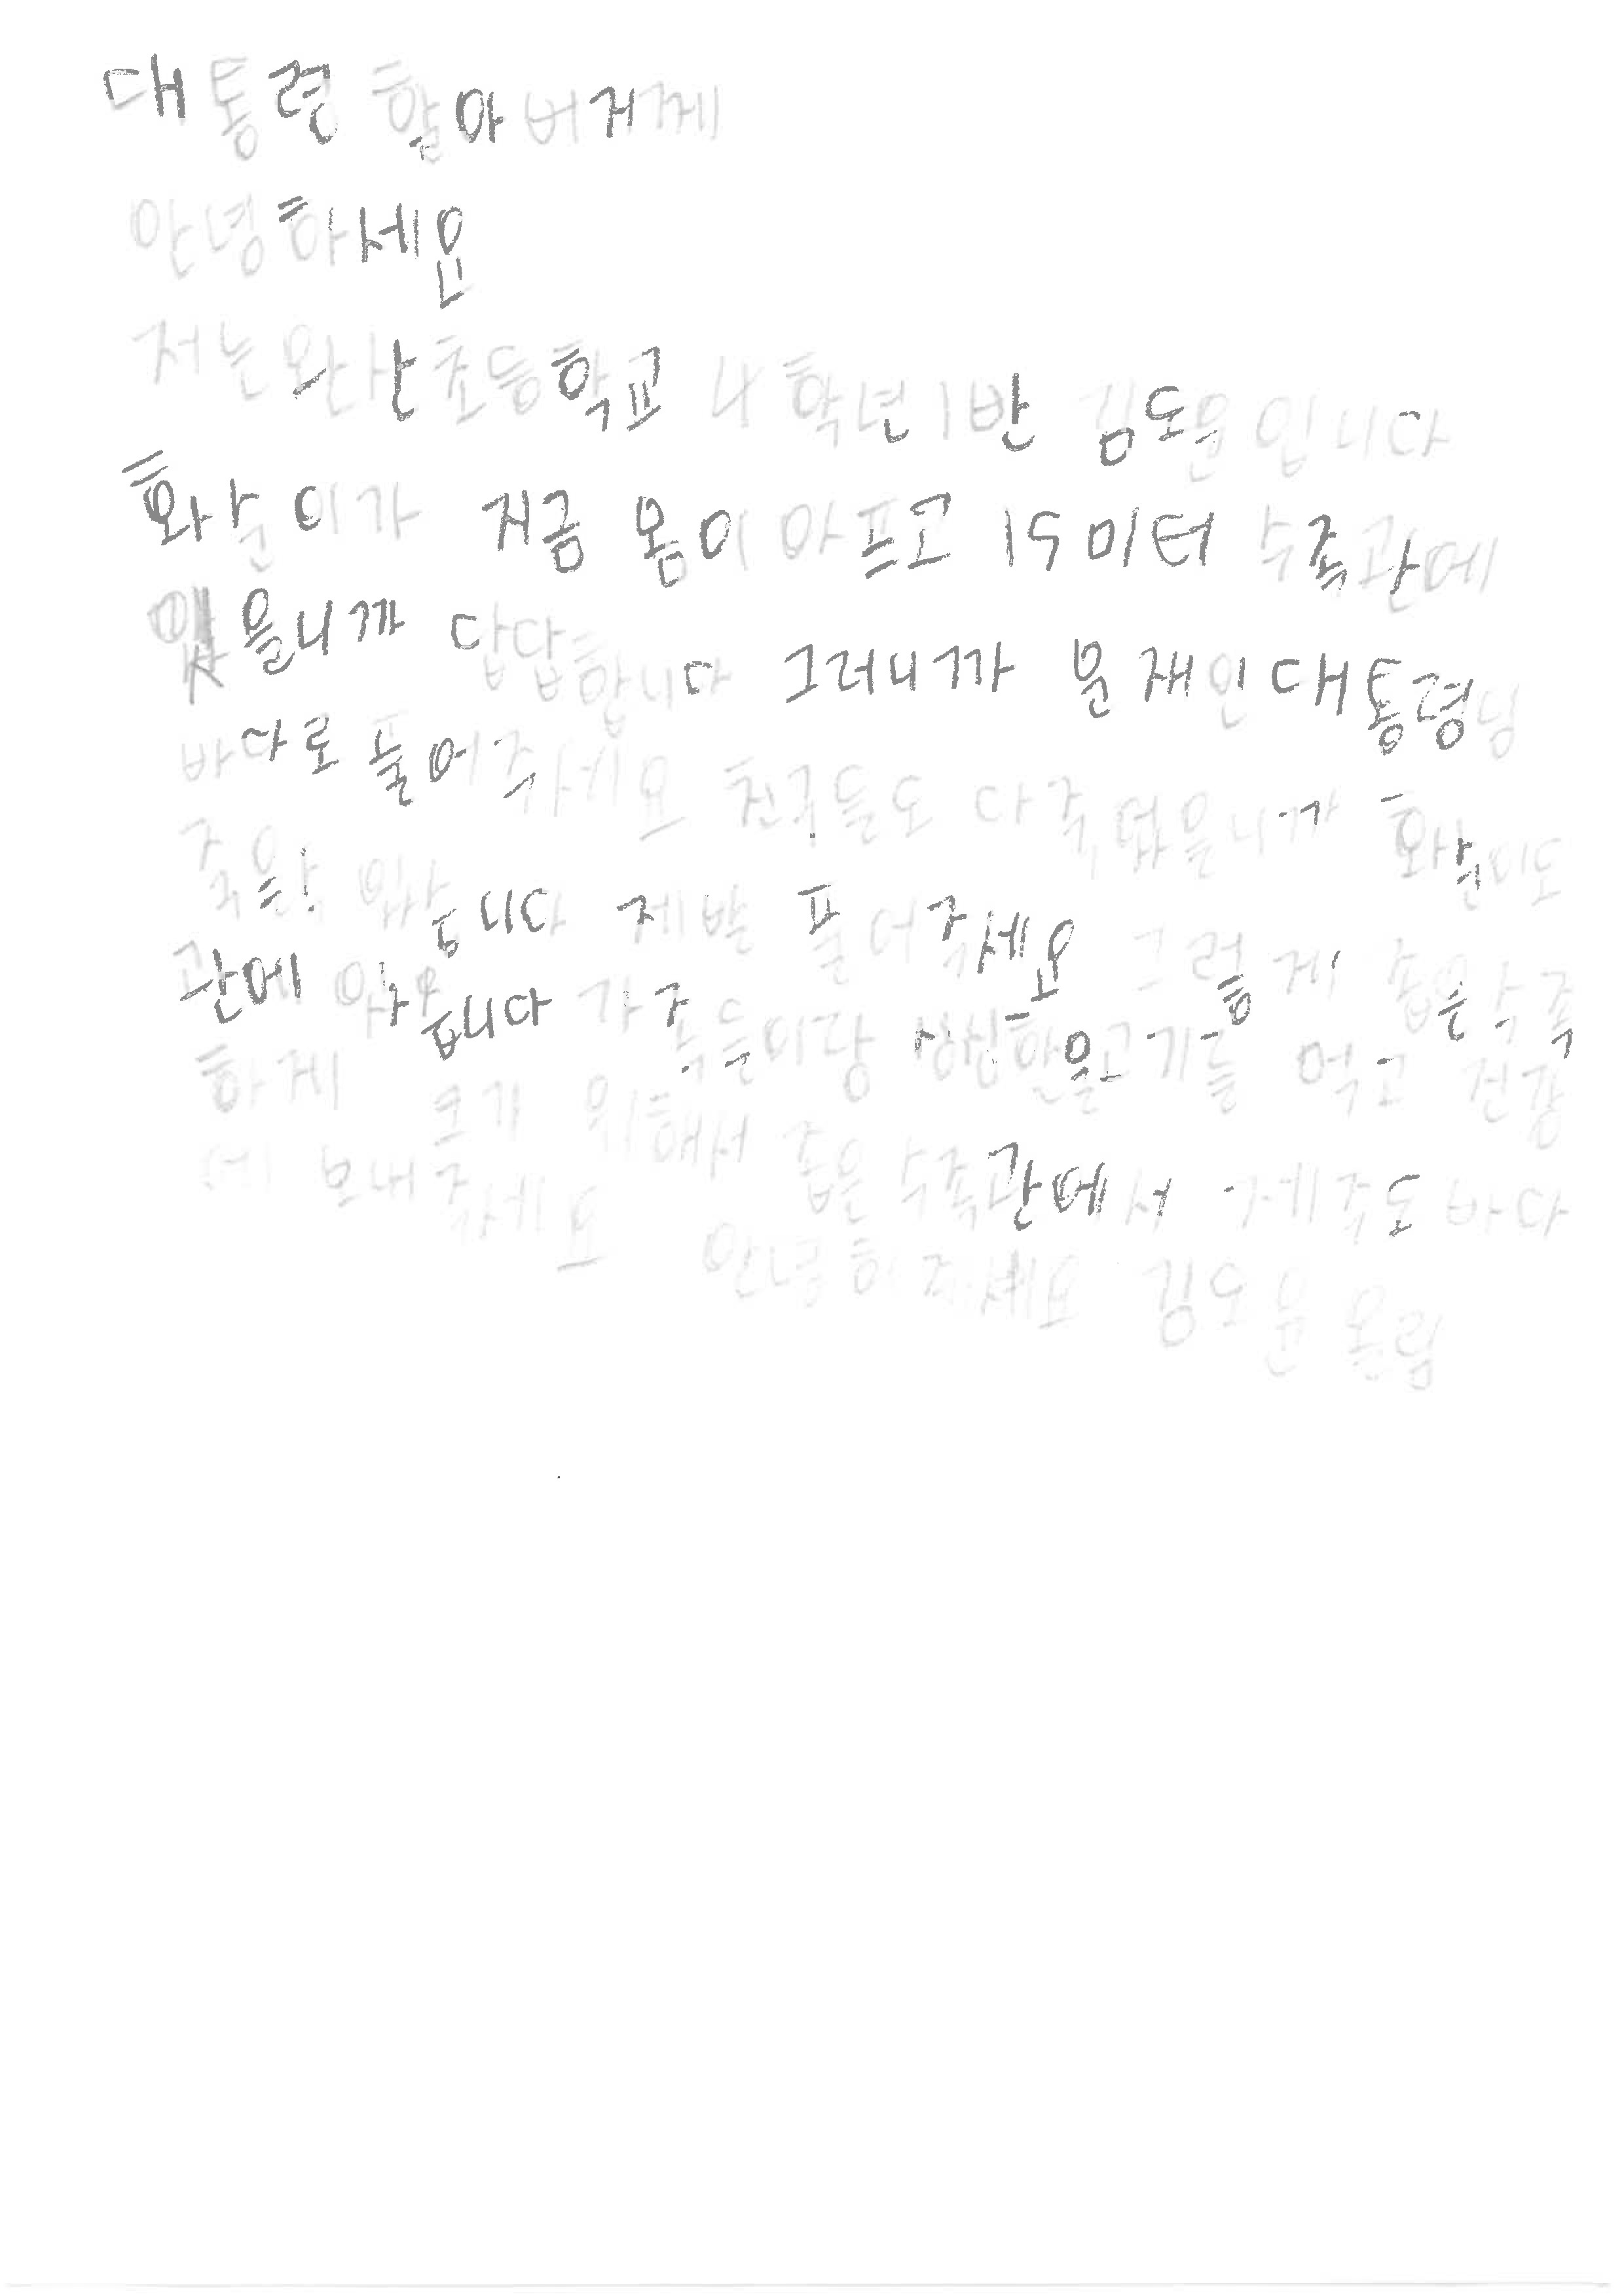 대통령 할아버저께
안녕하세요
저는 완산초등학교 4학년 1반 김도윤입니다
화순이가 지금 몸이 아프고 15미터 수족관에
있을니까 답답합니다 그러니까 문재인 대통령님
바다로 풀어주세요 친구들도 다 죽었을니까 화순이도
죽을 제발 풀어주세요 그렇게 좁은 수족
관에 가족들이랑 싱싱한 물고기를 먹고 건강
하게 크기 위해서 좁은 수족관에서 제주도 바다
에 보내주세요 김도윤 올림